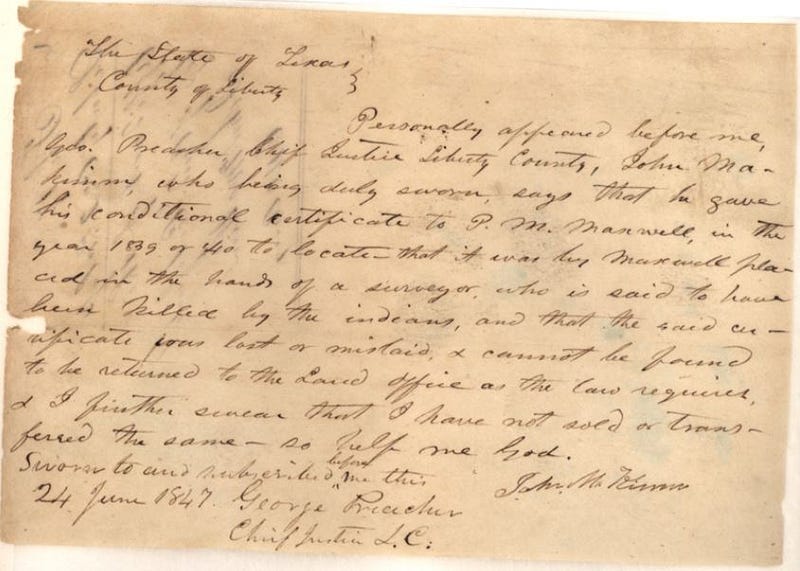 The State of Texas }
County of Liberty
Personally appeared before me,
Geo. Preacher, Chief Justice Liberty County, John Ma-
kimm, who being duly sworn, says that he gave
his conditional certificate to P. M. Maxwell, in the
year 1839 or 40 to locate - that it was by Maxwell pla-
ced in the hands of a surveyor, who is said to have
been killed by the indians, and that the said cer-
tificate was lost or mislaid, & cannot be found
to be returned to the Land office as the law requires,
& I further swear that I have not sold or trans-
ferred the same - so help me God.
Sworn to and subscribed before me this
24 June 1847. George Preacher
Chief Justice L.C.